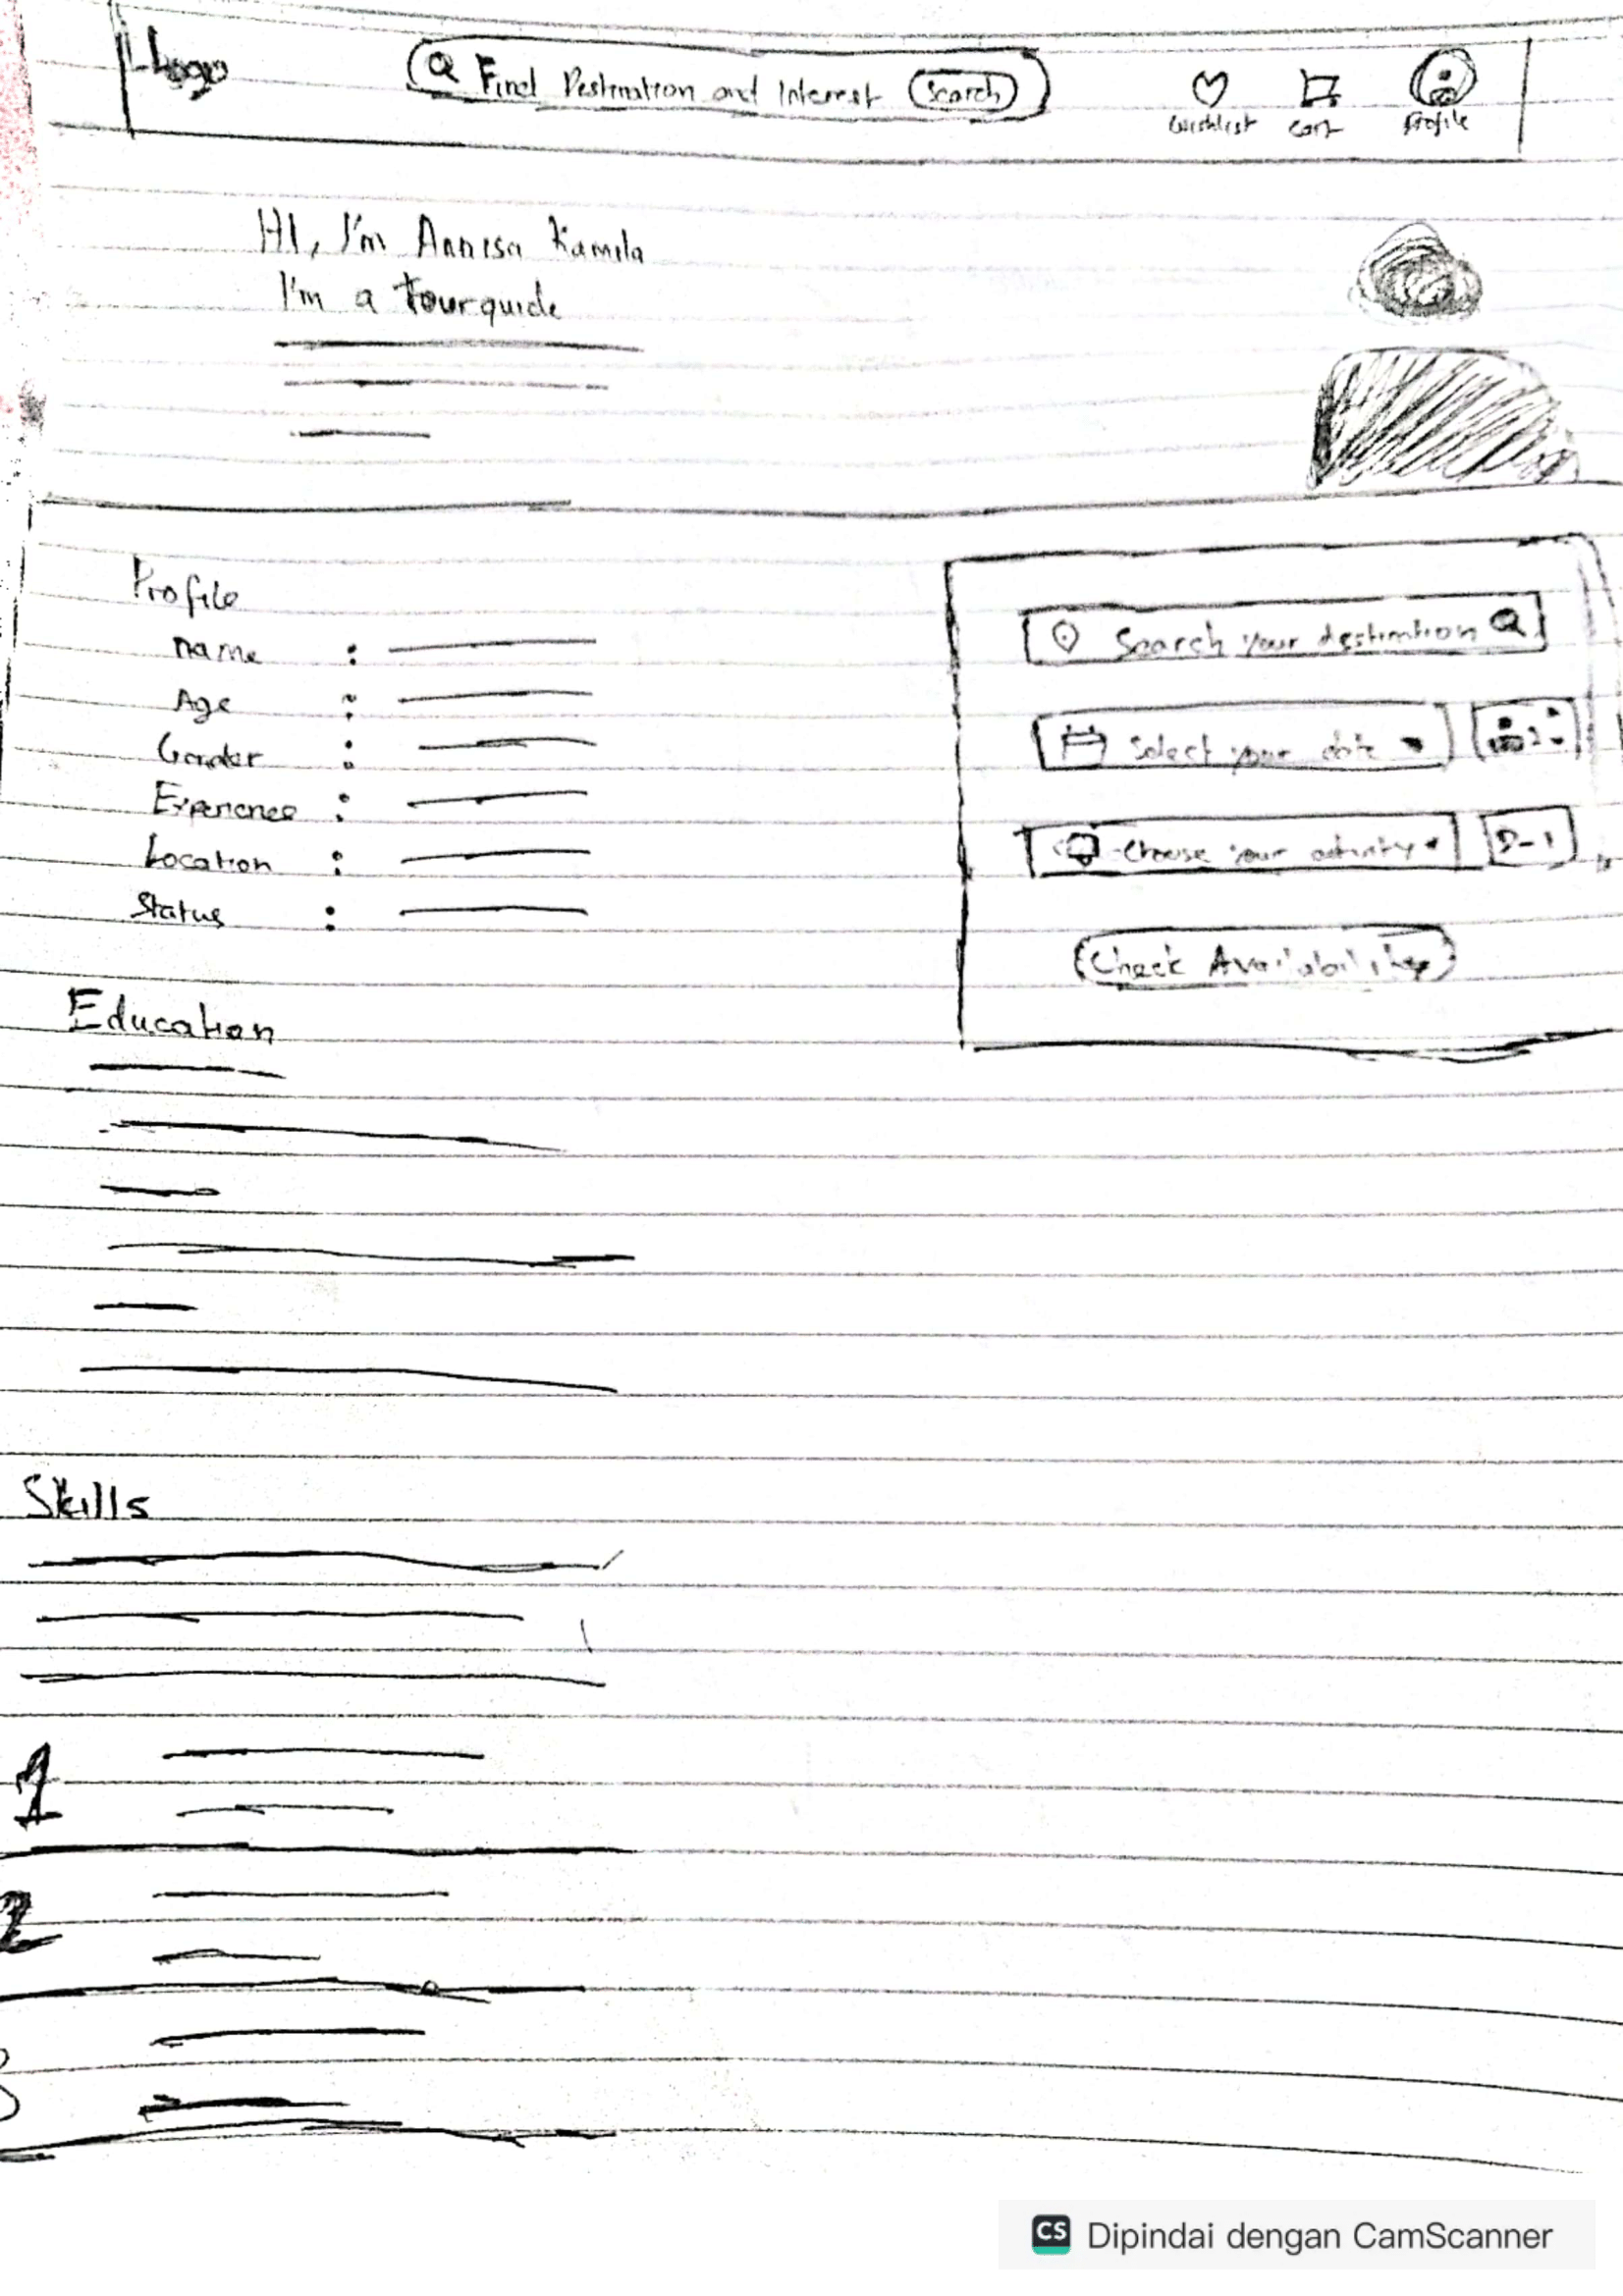 Logo
Find Destination and Interest Search
Wishlist Cart Profile
HI, I'm Annisa Kamila
I'm a tourguide
Profile
Name :
Age :
Gender :
Experience :
Location :
Status :
Search your destination
Select your date 2
Choose your activity
Check Availability
Education
Skills
1
2
3
CS Dipindai dengan CamScanner